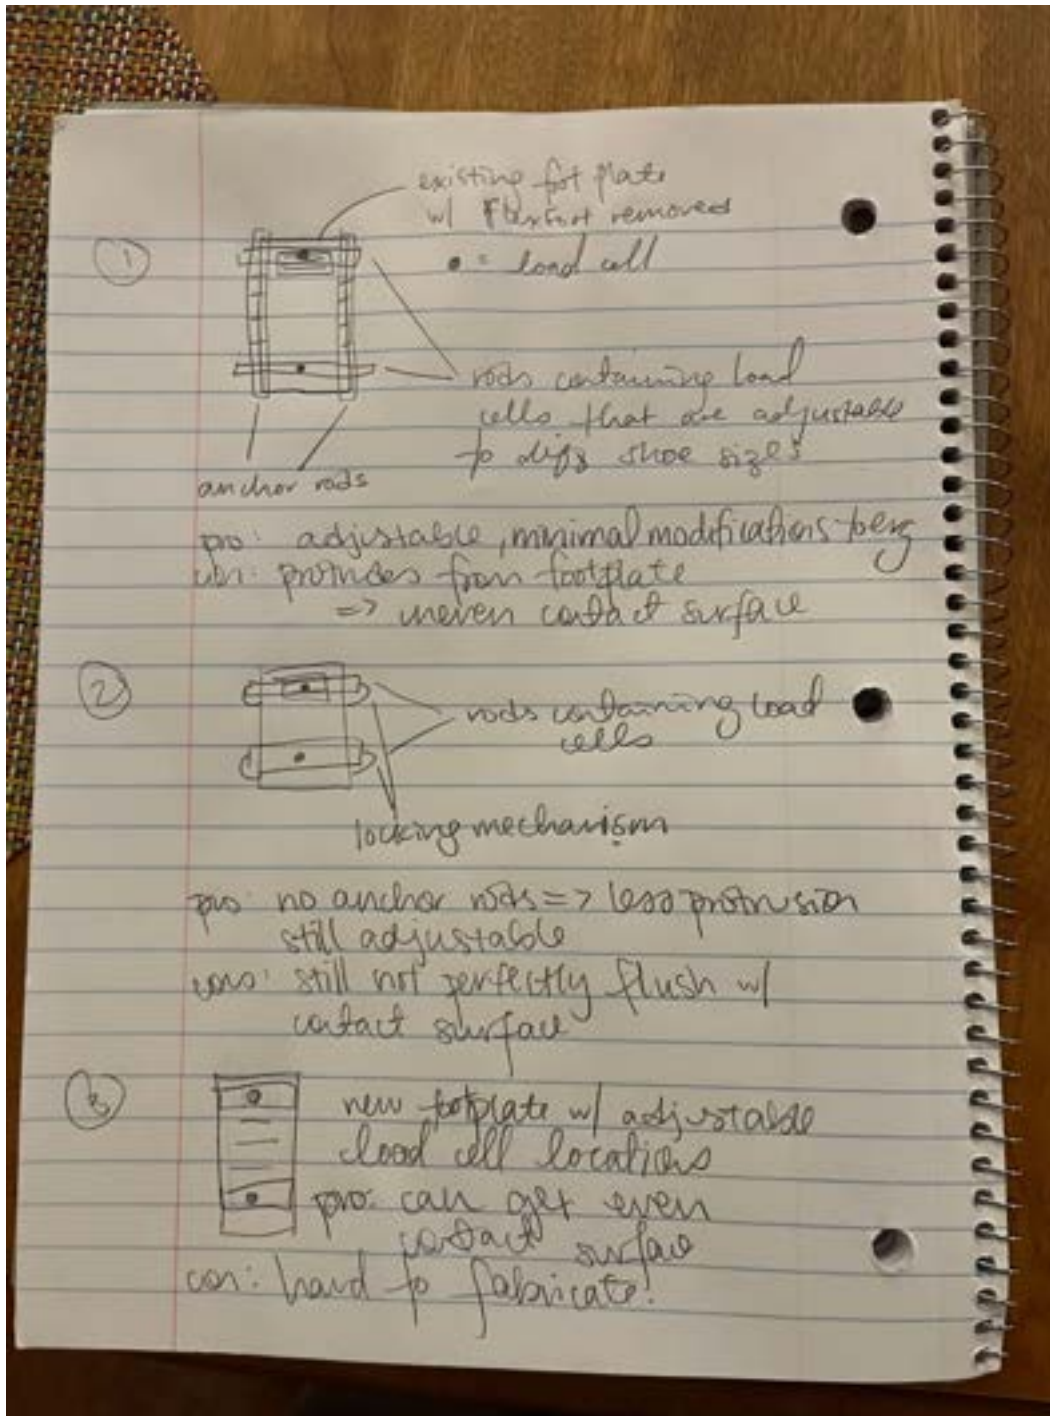 existing foot plate
w/ Flexfoot removed
①
• = load cell
rods containing load
cells that are adjustable
to diff shoe sizes
anchor rods
pro: adjustable, minimal modifications to erg
con: protrudes from footplate
=> uneven contact surface
②
rods containing load
cells
locking mechanism
pro: no anchor rods => less protrusion
still adjustable
cons: still not perfectly flush w/
contact surface
③
new footplate w/ adjustable
load cell locations
pro: can get even
contact surface
con: hard to fabricate!